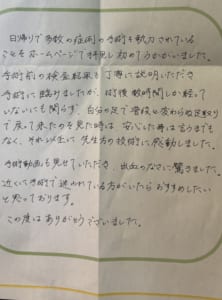 日帰りで多数の症例の手術を執刀されている
ことをホームページで拝見し初めてうかがいました。
手術前の検査結果も丁寧に説明いただき
手術に臨みましたが、術後数時間しか経って
いないにも関らず、自分の足で普段と変わらぬ足取り
で戻って来たのを見た時は安心した事は言うまでも
なく、それ以上に先生方の技術に感動しました。
手術動画も見せていただき、出血のなさに驚きました。
近くで手術で迷われている方がいたらおすすめしたい
と思っております。
この度はありがとうございました。